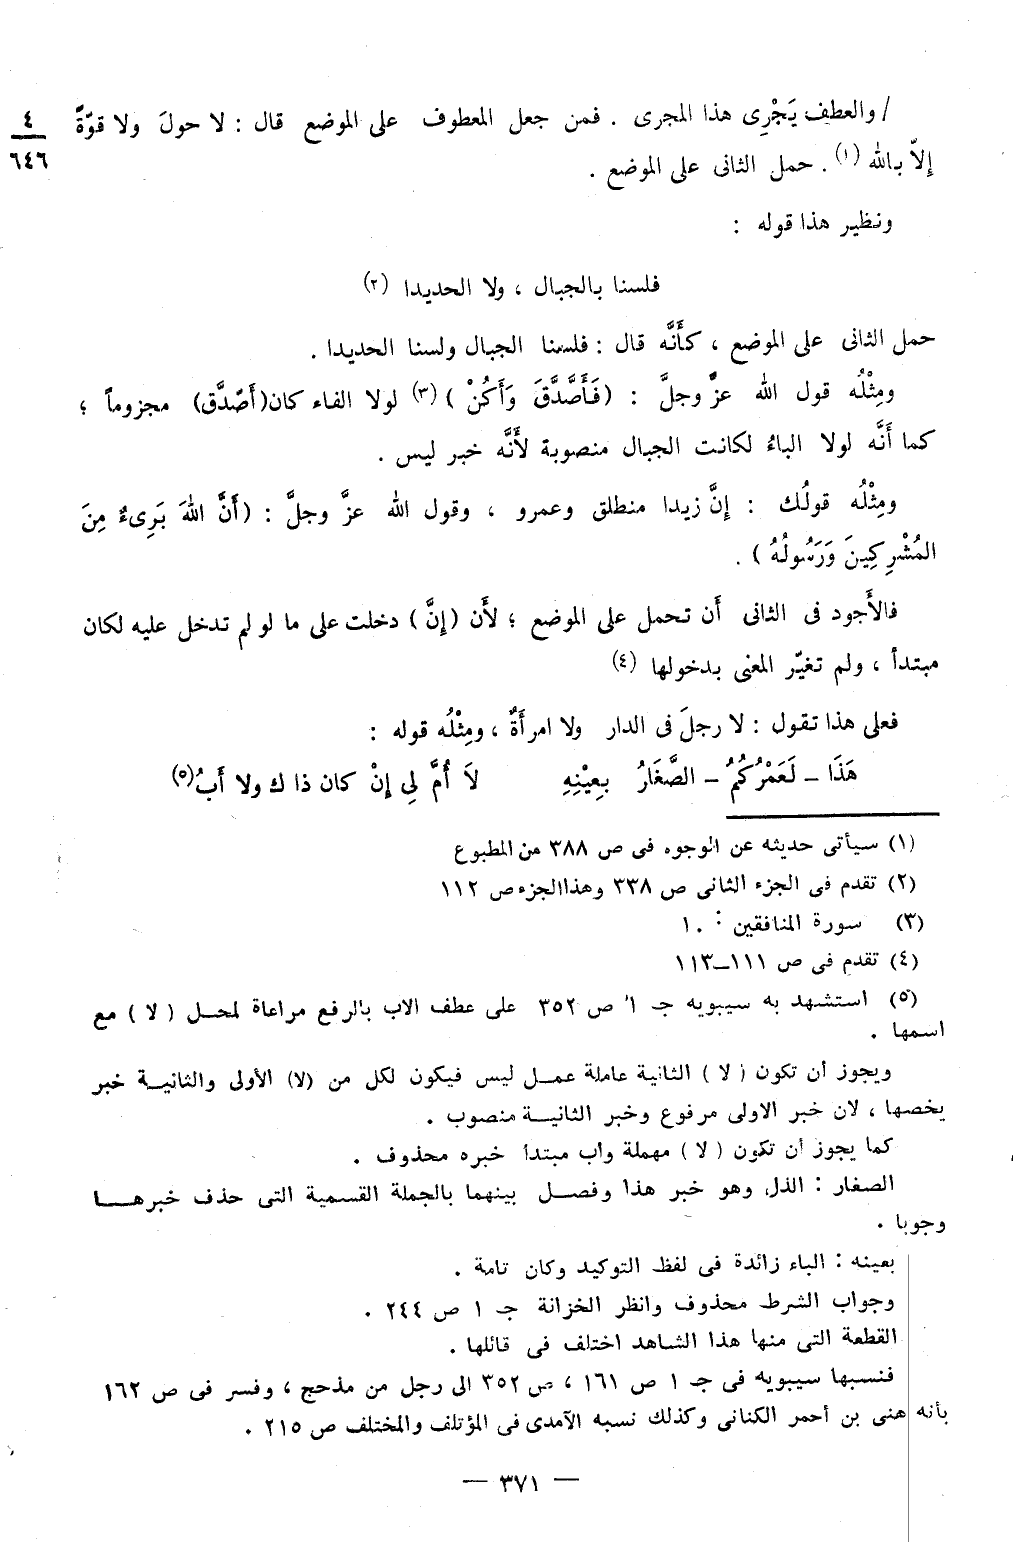 / والعطف يَجْرِى هذا المجرى . فمن جعل المعطوف على الموضع قال : لا حولَ ولا قوّةٌ
٤
٦٤٦
إلاّ بالله (١) . حمل الثانى على الموضع .
ونظير هذا قوله :
فلسنا بالجبال ، ولا الحديدا (٢)
حمل الثانى على الموضع ، كأَنَّه قال : فلسنا الجبال ولسنا الحديدا .
ومِثْلُه قول الله عزَّ وجلَّ : ( فَأَصَّدَّقَ وَأَكُنْ ) (٣) لولا الفاء كان (أَصَّدَّق) مجزوماً ؛
كما أَنَّه لولا الباءُ لكانت الجبال منصوبة لأَنَّه خبر ليس .
ومِثْلُه قولُك : إنَّ زيدا منطلق وعمرو ، وقول الله عزَّ وجلَّ : (أَنَّ اللهَ بَرِىءٌ مِنَ
المُشْرِكِينَ وَرَسُولُهُ ) .
فالأَجود فى الثانى أَن تحمل على الموضع ؛ لأَن (إنَّ ) دخلت على ما لو لم تدخل عليه لكان
مبتدأ ، ولم تغيّر المعنى بدخولها (٤)
فعلى هذا تقول : لا رجلَ فى الدار ولا امرأَةٌ ، ومِثْلُه قوله :
هَذَا – لَعَمْرُكُمُ – الصَّغَارُ بِعِيْنِهِ لاَ أُمَّ لِي إنْ كان ذاك ولا أَبُ (٥)
(١) سيأتى حديثه عن الوجوه فى ص ٣٨٨ من المطبوع
(٢) تقدم فى الجزء الثانى ص ٣٣٨ وهذا الجزء ص ١١٢
(٣) سورة المنافقين : ١٠
(٤) تقدم فى ص ١١١–١١٣
(٥) استشهد به سيبويه جـ ١ ص ٣٥٢ على عطف الاب بالرفع مراعاة لمحل ( لا ) مع
اسمها .
ويجوز أن تكون ( لا ) الثانية عاملة عمل ليس فيكون لكل من (لا) الأولى والثانية خبر
يخصها ، لان خبر الاولى مرفوع وخبر الثانية منصوب .
كما يجوز أن تكون ( لا ) مهملة وأب مبتدأ خبره محذوف .
الصغار : الذل وهو خبر هذا وفصل بينهما بالجملة القسمية التى حذف خبرها
وجوبا .
بعينه : الباء زائدة فى لفظ التوكيد وكان تامة .
وجواب الشرط محذوف وانظر الخزانة جـ ١ ص ٢٤٤ .
القطعة التى منها هذا الشاهد اختلف فى قائلها .
فنسبها سيبويه فى جـ ١ ص ١٦١ ، ص ٣٥٢ الى رجل من مذحج ، وفسر فى ص ١٦٢
بأنه هنى بن أحمر الكنانى وكذلك نسبه الآمدى فى المؤتلف والمختلف ص ٢١٥ .
— ٣٧١ —